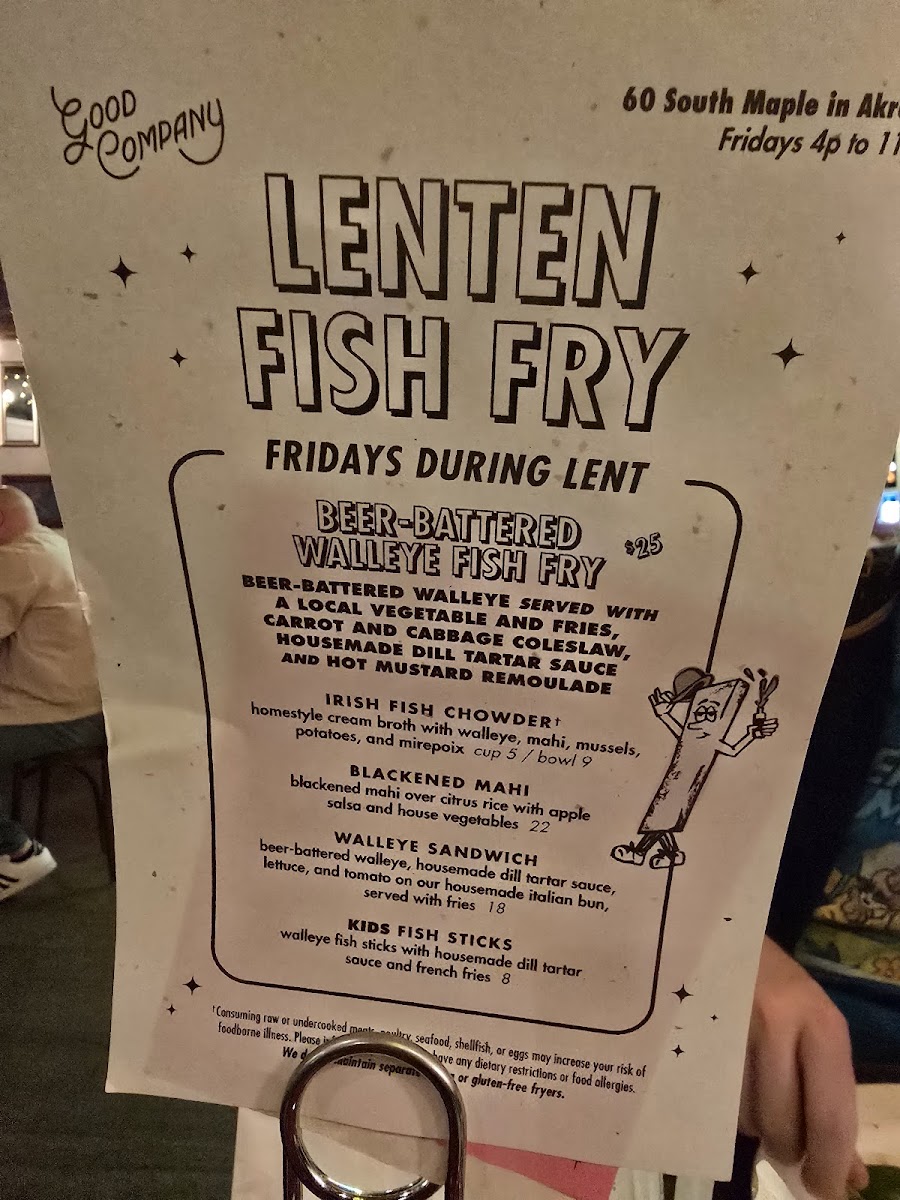 GOOD
COMPANY
60 South Maple in
Fridays 4p to 11
LENTEN
FISH FRY
FRIDAYS DURING LENT
BEER-BATTERED
WALLEYE FISH FRY $25
BEER-BATTERED WALLEYE SERVED WITH
A LOCAL VEGETABLE AND FRIES,
CARROT AND CABBAGE COLESLAW,
HOUSEMADE DILL TARTAR SAUCE
AND HOT MUSTARD REMOULADE
IRISH FISH CHOWDER†
homestyle cream broth with walleye, mahi, mussels,
potatoes, and mirepoix cup 5 / bowl 9
BLACKENED MAHI
blackened mahi over citrus rice with apple
salsa and house vegetables 22
WALLEYE SANDWICH
beer-battered walleye, housemade dill tartar sauce,
lettuce, and tomato on our housemade italian bun,
served with fries 18
KIDS FISH STICKS
walleye fish sticks with housemade dill tartar
sauce and french fries 8
†Consuming raw or undercooked meats, poultry, seafood, shellfish, or eggs may increase your risk of
foodborne illness. Please have any dietary restrictions or food allergies.
We maintain separate or gluten-free fryers.